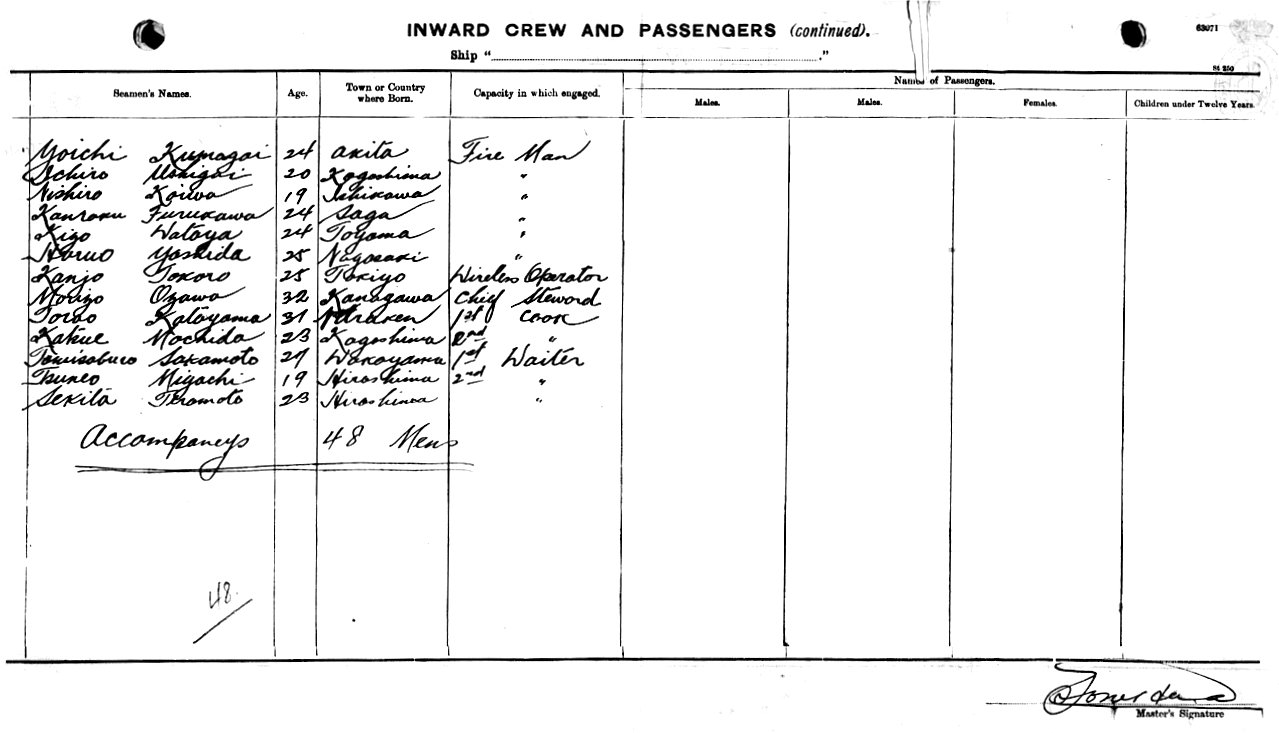 INWARD CREW AND PASSENGERS (continued).
63071
Ship "
."
St 250
Seamen's Names.
Age.
Town or Country where Born.
Capacity in which engaged.
Names of Passengers.
Males.
Males.
Females.
Children under Twelve Years.
Yoichi Kumagai 24 Akita Fire Man
Ichiro Ushigai 20 Kagoshima "
Nishiro Koiwa 19 Ishikawa "
Kanroku Furukawa 24 Saga "
Kizo Wataya 24 Toyama "
Haruo Yoshida 25 Nagasaki "
Kanjo Tokoro 25 Tokiyo Wireless Operator
Morizo Ozawa 32 Kanagawa Chief Steword
Torao Katayama 31 1st Cook
Katsue Mochida 23 Kagoshima 2nd "
Tomisaburo Sakamoto 27 Wakayama 1st Waiter
Tsuneo Migachi 19 Hiroshima 2nd "
Sekita Teramoto 23 Hiroshima "
Accompaneys 48 Mens
48
Master's Signature